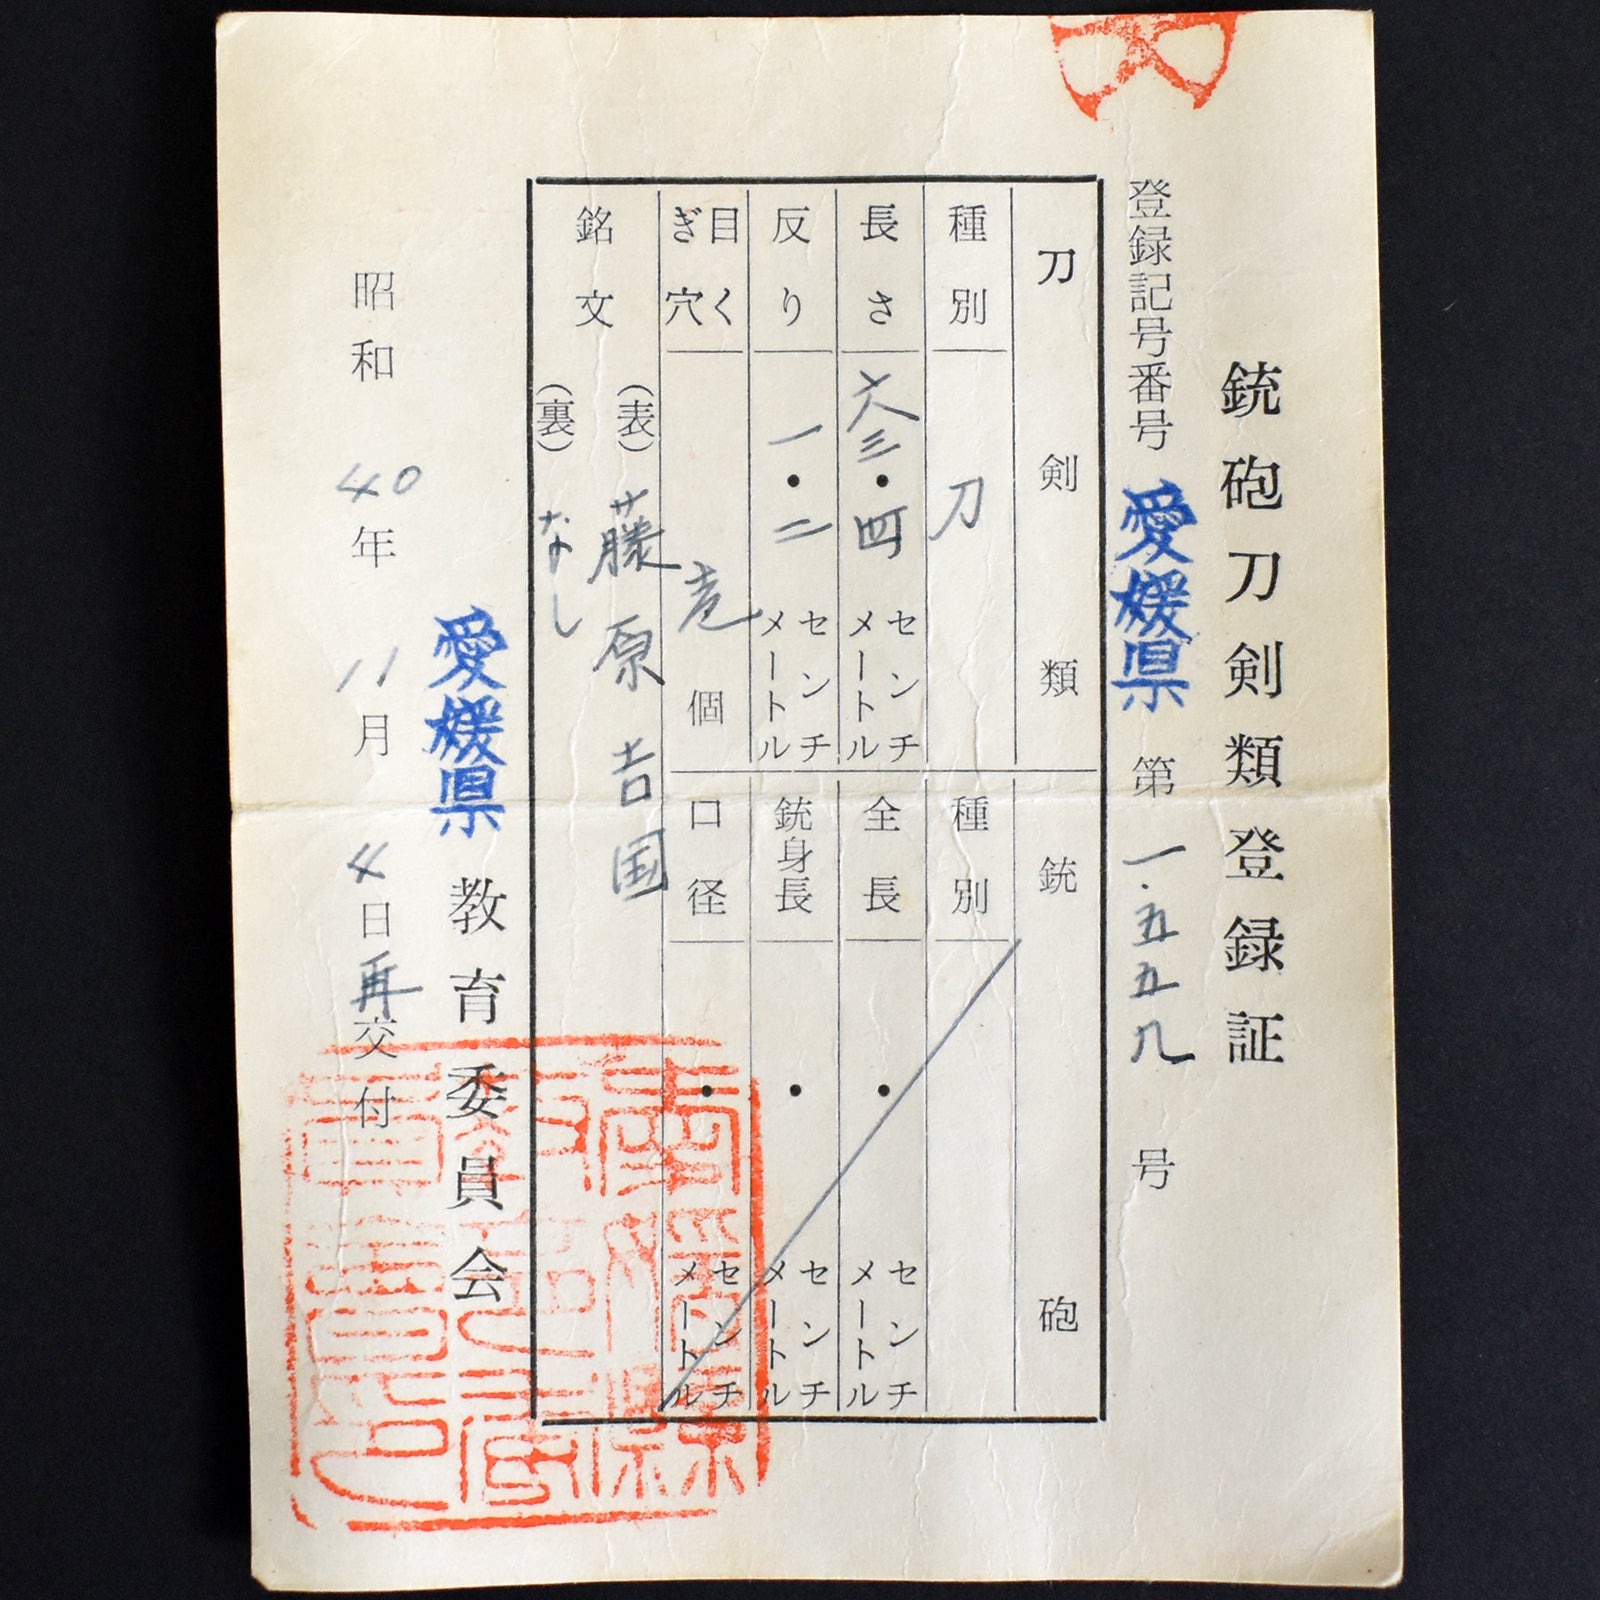 銃砲刀剣類登録証
登録記号番号 愛媛県 第 一.五五八 号
刀剣類
銃砲
種別 刀
長さ 六三・四 センチメートル
反り 一・二 センチメートル
目くぎ穴 壱 個
種別
全長 ・ センチメートル
銃身長 ・ センチメートル
口径 ・ センチメートル
銘文
(表) 藤原吉国
(裏) なし
愛媛県教育委員会
昭和40年11月4日再交付